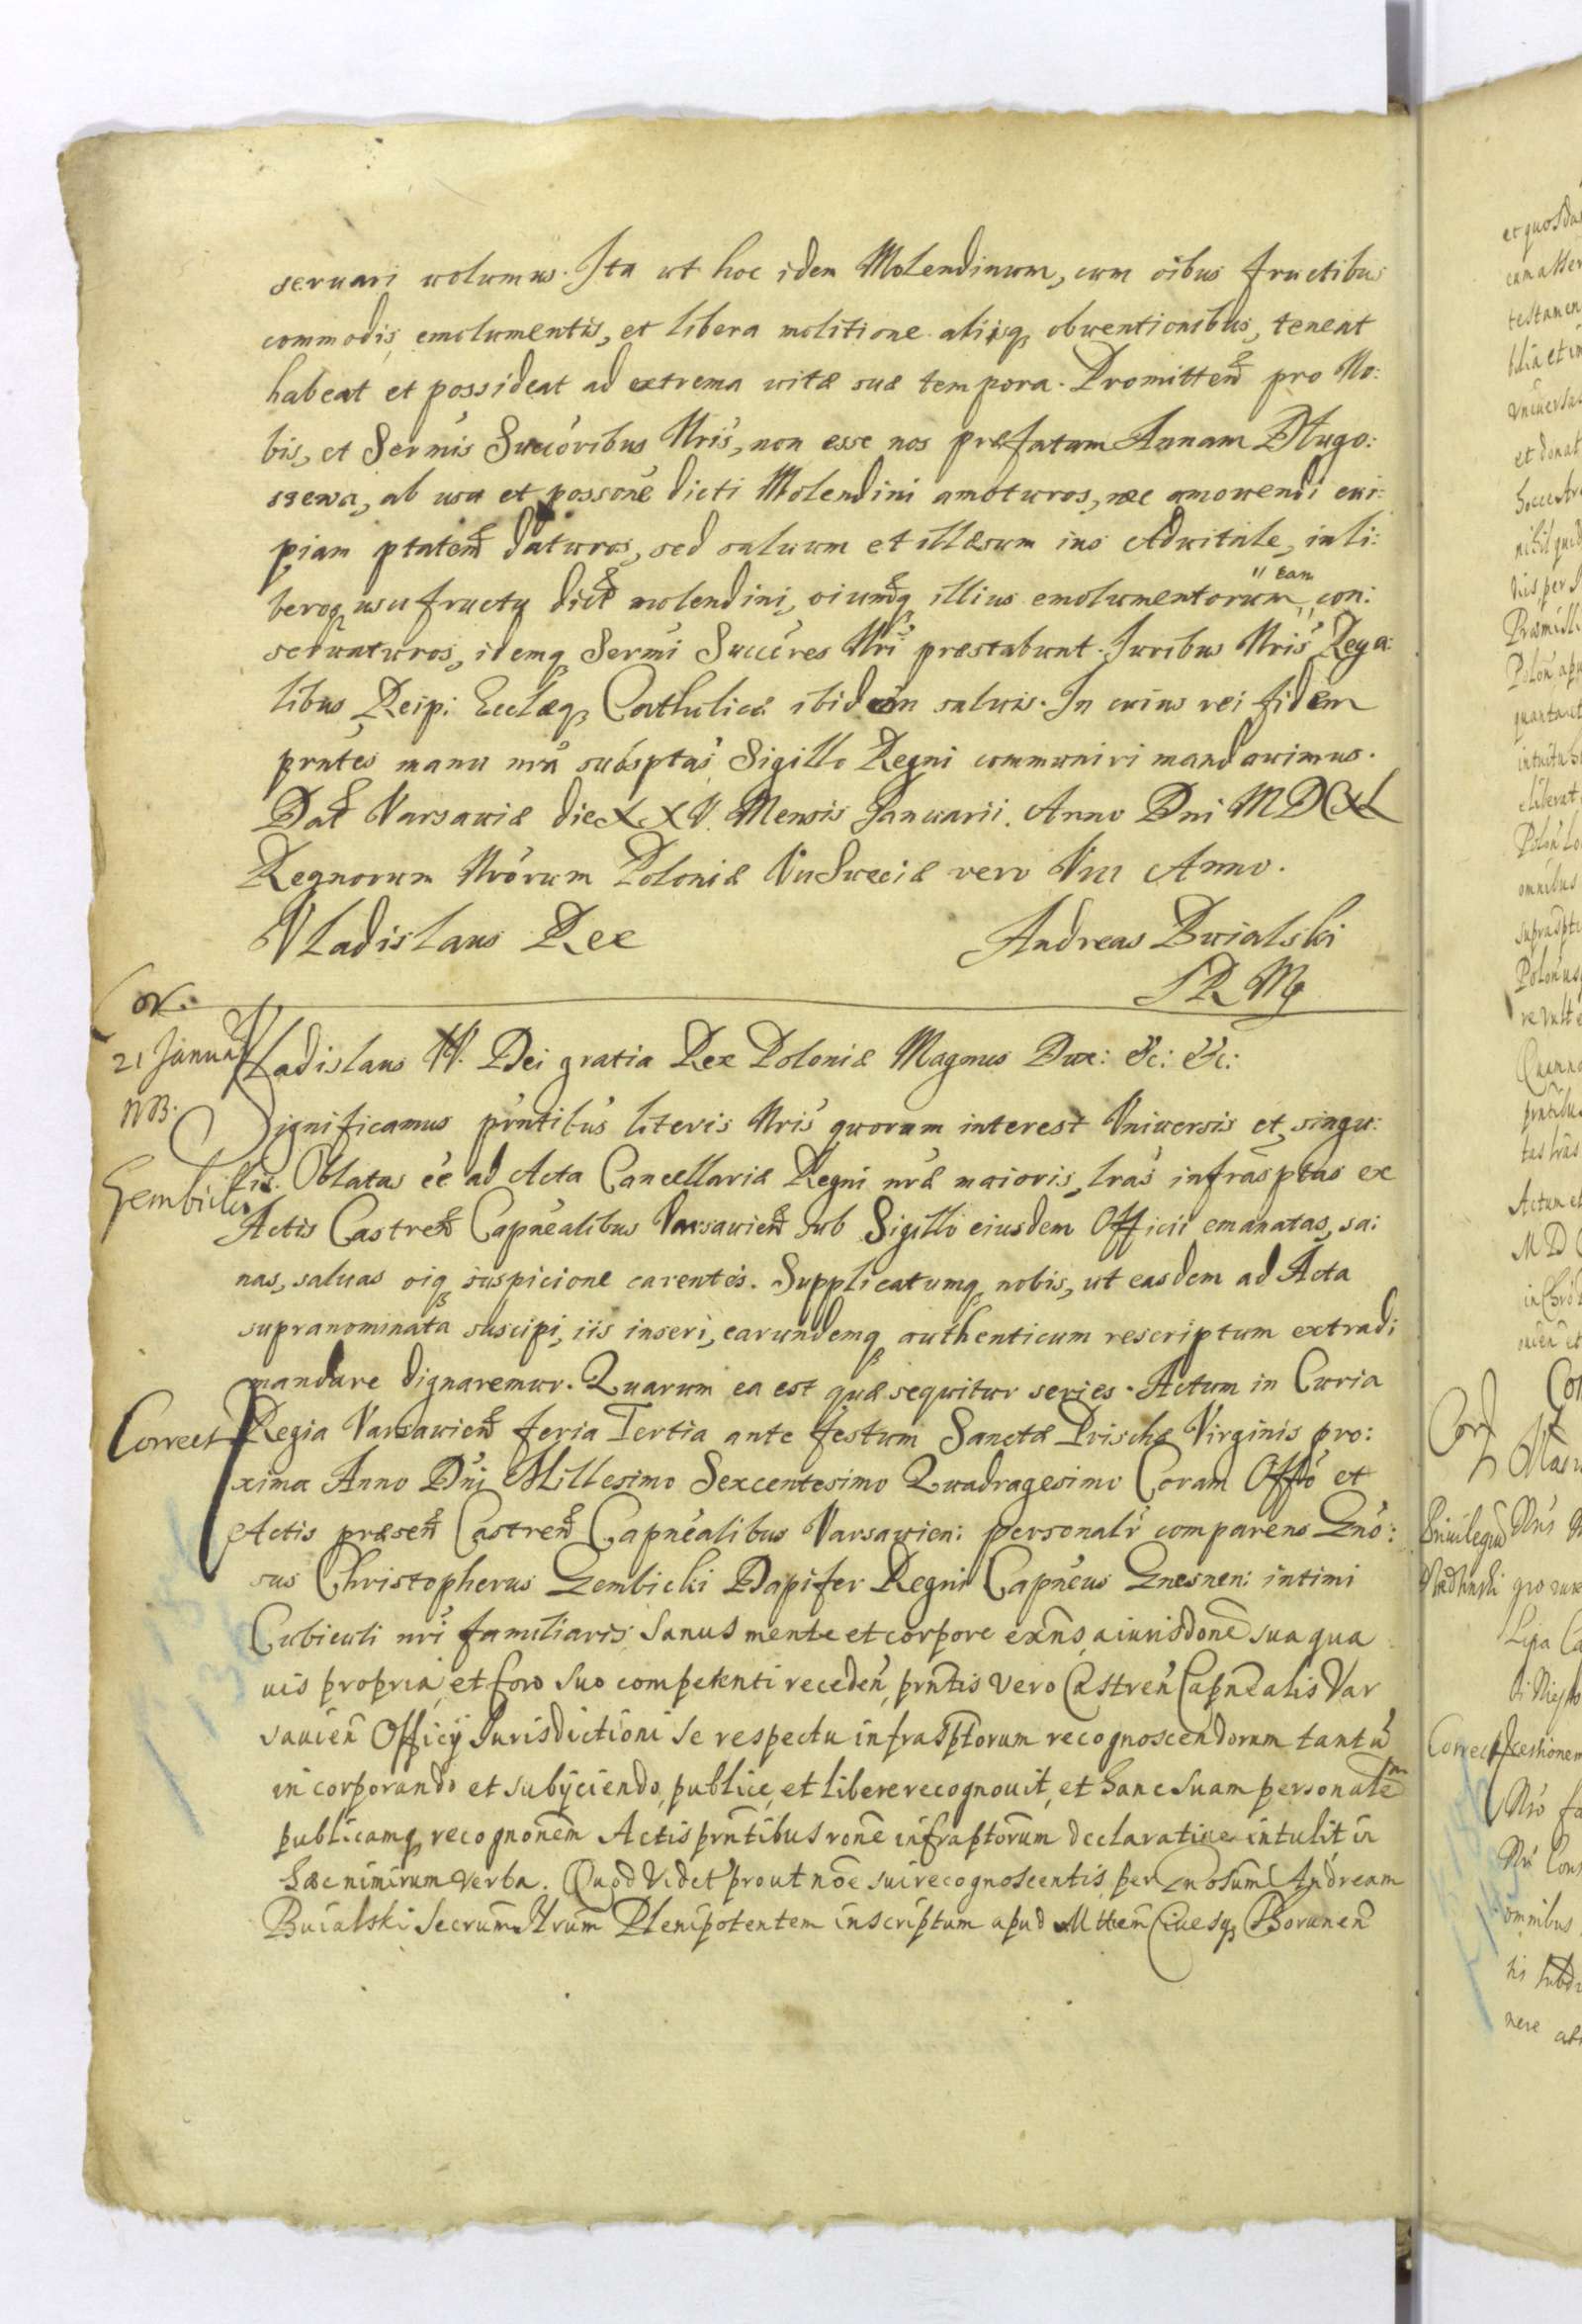 seruari wolumus. Ita ut hoc idem Molendinum, cum oibus fructibus
commodis, emolumentis, et libera molitione aliisq, obwentionibus, teneat
habeat et possideat ad extrema witæ suæ tempora. Promitten pro No:
bis, et Sermis Succoribus Nris, non esse nos præfatam Annam Dlugo:
szewa, ab usu et possone dicti Molendini amoturos, nec amowendi cui:
piam ptatem daturos, sed saluum et illæsum ius Adwitale, in li:
beroq usufructu dict molendini, oiumq illius emolumentorum "eam con:
seruaturos, idemq Sermi Succres Nri præstabunt. Juribus Nris Rega:
libus Reip: Ecclæq, Catholicæ ibidem saluis. In cuius rei fidem
prntes manu nra subsptas Sigillo Regni communiri mandawimus.
Dat Varsawiæ die XXV. Mensis Januarii. Anno Dni MDCXL
Regnorum Nrorum Poloniæ VII Sweciæ vero VIII Anno.
Vladislaus Rex
Andreas Bwialski
SRMq
Cor.
21 Januar
NB.
Gembicki
Vladislaus IV. Dei gratia Rex Poloniæ Magnus Dux: &c: &c:
Significamus prntibus literis Nris quorum interest Vniuersis et singu:
lis. Oblatas ee ad Acta Cancellariæ Regni nræ maioris, lras infrasptas ex
Actis Castren Capnealibus Varsawien sub Sigillo eiusdem Officii emanatas, sa:
nas, saluas oiq suspicione carentes. Supplicatumq nobis, ut easdem ad Acta
supranominata suscipi, iis inseri, earundemq authenticum rescriptum extradi
mandare dignaremur. Quarum ea est quæ sequitur series. Actum in Curia
Correct
Regia Varsawien feria Tertia ante festum Sanctæ Priscæ Virginis pro:
xima Anno Dni Millesimo Sexcentesimo Quadragesimo Coram Offo et
Actis præsen Castren Capnealibus Varsawien: personalr comparens Gno:
sus Christopherus Gembicki Dapifer Regni Capneus Gnesnen: intimi
Cubiculi nri familiaris, Sanus mente et corpore exns, a iurisdone sua qua
uis propria, et foro suo competenti receden, prntis vero Castren Capnealis Var
sauien Officij Jurisdictioni se respectu infrasptorum recognoscendorum tantu
incorporando et subijciendo, publice, et libere recognouit, et hanc suam personalem
publicamq, recognonem Actis prntibus rone infraptorum declaratiue intulit in
hæc nimirum verba. Quod Videt prout noe sui recognoscentis per Gnosum Andream
Buialski Secrum Nrum Plenipotentem inscriptum apud Mttem Ciuesq, Thorunen